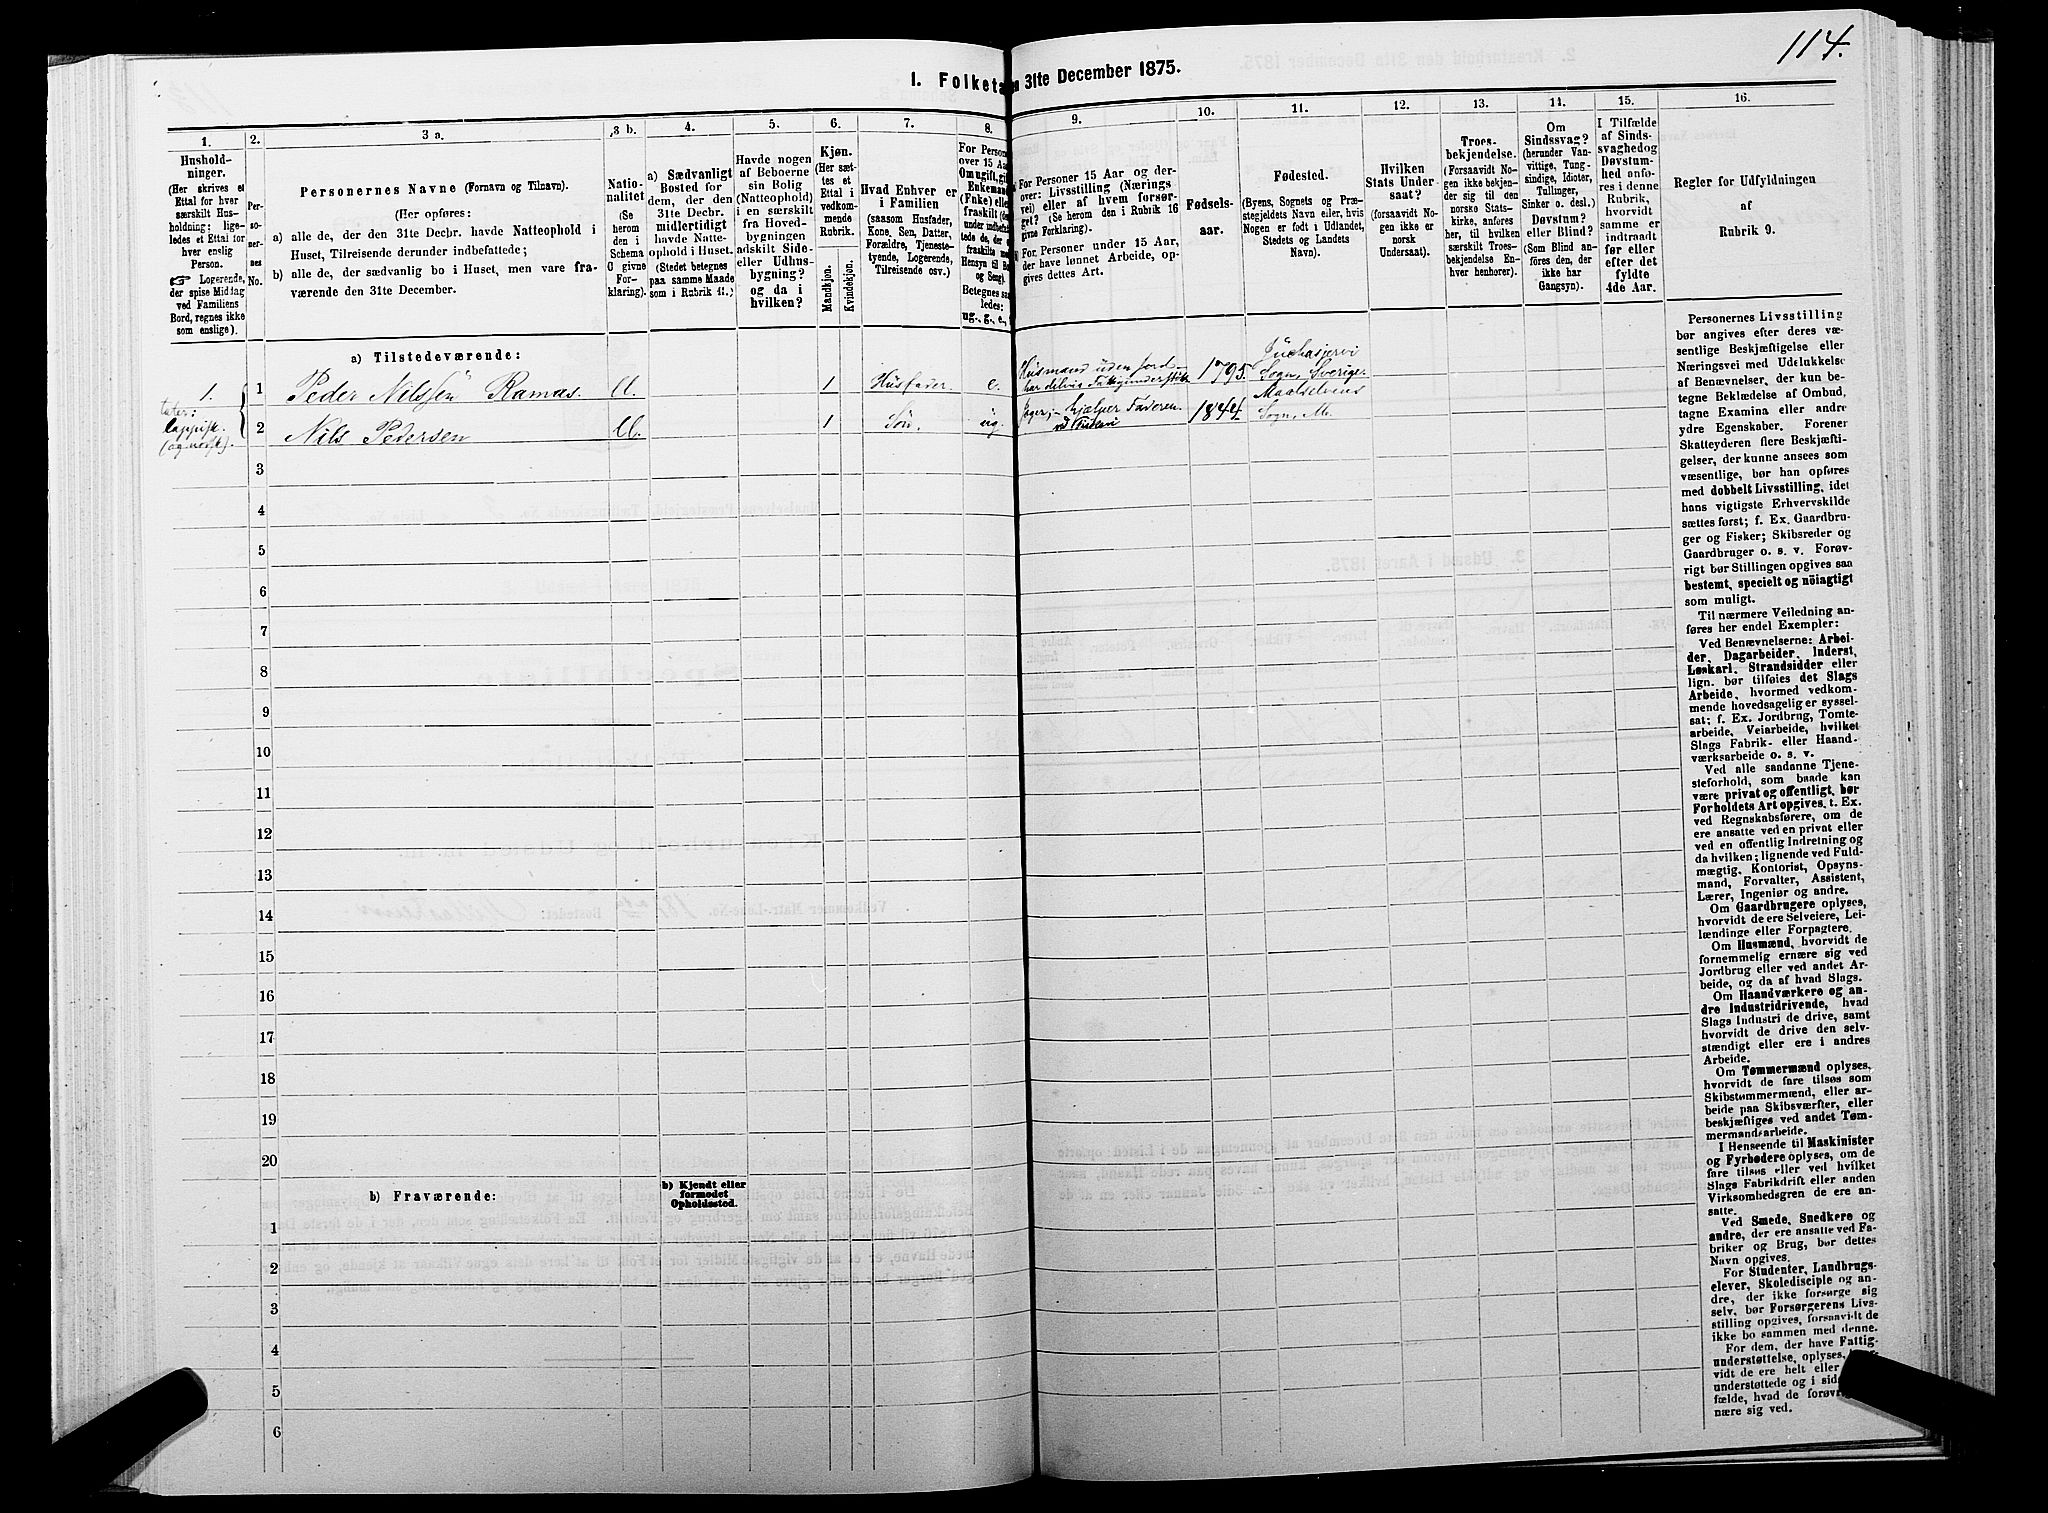 114.
I. Folketa
en 31te December 1875.
1.
Hushold-
ninger.
(Her skrives et
Ettal for hver
særskilt Hus-
holdning; lige-
ledes et Ettal for
hver enslig
Person.
☞ Logerende,
der spise Middag
ved Familiens
Bord, regnes ikke
som enslige).
2.
Per-
soner-
nes
No.
3 a.
Personernes Navne (Fornavn og Tilnavn).
(Her opføres:
a) alle de, der den 31te Decbr. havde Natteophold i
Huset, Tilreisende derunder indbefattede;
b) alle de, der sædvanlig bo i Huset, men vare fra-
værende den 31te December.
3 b.
Natio-
nalitet
(Se
herom
den i
Schema
O givne
For-
klaring).
4.
a) Sædvanligt
Bosted for
dem, der den
31te Decbr.
midlertidigt
havde Natte-
ophold i Huset.
(Stedet betegnes
paa samme Maade
som i Rubrik 11.)
5.
Havde nogen
af Beboerne
sin Bolig
(Natteophold)
i en særskilt
fra Hoved-
bygningen
adskilt Side-
eller Udhus-
bygning?
og da i
hvilken?
6.
Kjøn.
(Her sæt-
tes et
Ettal i
vedkom-
mende
Rubrik.
Mandkjøn.
Kvindekjøn.
7.
Hvad Enhver er
i Familien
(saasom Husfader,
Kone, Søn, Datter,
Forældre, Tjeneste-
tyende, Logerende,
Tilreisende osv.)
8.
For Person
over 15 Aa
Om ugift, gif
Enkemand
(Enke) elle
fraskilt (de
under indbefat-
tede de, der e
fraskilte me
Hensyn til Bo
og Seng).
Betegnes saa
ledes:
ug., g., e.,
9.
For Personer 15 Aar og der-
over: Livsstilling (Nærings
vei) eller af hvem forsør-
get? (Se herom den i Rubrik 16
givne Forklaring).
For. Personer under 15 Aar,
der have lønnet Arbeide, op-
gives dettes Art.
10.
Fødsels-
aar.
11.
Fødested.
(Byens, Sognets og Præ-
stegjeldets Navn eller, hvis
Nogen er født i Udlandet,
Stedets og Landets
Navn).
12.
Hvilken
Stats Under
saat?
(forsaavidt No-
gen ikke er
norsk
Undersaat).
13.
Troes-
bekjendelse.
(Forsaavidt No-
gen ikke bekjen-
der sig til den
norske Stats-
kirke, anføres
her, til hvilken
særskilt Troes-
bekjendelse En-
hver henhorer).
14.
Om
Sindssvag?
(herunder Van-
vittige, Tung-
sindige, Idioter,
Tullinger,
Sinker o. desl.)
Døvstum?
eller Blind?
(Som Blind an-
føres den, der
ikke har
Gangsyn).
15.
I Tilfælde
af Sinds-
svaghedog
Døvstum-
hed anfø-
res i denne
Rubrik,
hvorvidt
samme er
indtraadt
før eller
efter det
fyldte
4de Aar.
16.
Regler for Udfyldningen
af
Rubrik 9.
a) Tilstedeværende:
1.
1
Peder Nilssen Ramas.
Ll.
1
Husfader.
e.
Husmand uden Jord
har delvis Fattigunderstøtt.
1795.
Juckasjervi
Sogn, Sverige.
taler:
lappisk.
(og norsk).
2
Nils Pedersen
Ll.
1
Søn.
ug.
hjælper Faderen
1844.
Maalselvens
Sogn, M.
3
4
5
6
7
8
9
10
11
12
13
14
15
16
17
18
19
20
b) Fraværende:
b) Kjendt eller
formodet
Opholdssted.
1
2
3
4
5
6
Personernes Livsstilling
bør angives efter deres væ-
sentlige Beskjæftigelse eller
Næringsvei med Udelukkelse
af Benævnelser, der kun be-
tegne Beklædelse af Ombud,
tagne Examina eller andre
ydre Egenskaber. Forener
Skatteyderen flere Beskjæfti-
gelser, der kunne ansees som
væsentlige, bør han opføres
med dobbelt Livsstilling, idet
hans vigtigste Erhvervskilde
sættes først; f. Ex. Gaardbru-
ger og Fisker; Skibsreder og
Gaardbruger o. s. v. Forøv-
rigt bør Stillingen opgives saa
bestemt, specielt og nöiagtigt
som muligt.
Til nærmere Veiledning an-
føres her endel Exempler:
Ved Benævnelserne: Arbei-
der, Dagarbeider, Inderst,
Løskarl, Strandsidder eller
lign. bør tilføies det Slags
Arbeide, hvormed vedkom-
mende hovedsagelig er syssel-
sat; f. Ex. Jordbrug, Tomte-
arbeide, Veiarbeide, hvilket
Slags Fabrik- eller Haand-
værksarbeide o. s. v.
Ved alle saadanne Tjene-
steforhold, som baade kan
være privat og offentligt, bør
Forholdets Art opgives, t. Ex.
ved Regnskabsførere, om de
ere ansatte ved en privat eller
ved en offentlig Indretning og
da hvilken; lignende ved Fuld-
mægtig, Kontorist, Opsyns-
mand, Forvalter, Assistent,
Lærer, Ingeniør og andre.
Om Gaardbrugere oplyses,
hvorvidt de ere Selveiere, Lei-
lændinge eller Forpagtere.
Om Husmænd, hvorvidt de
fornemmelig ernære sig ved
Jordbrug eller ved andet Ar-
beide, og da af hvad Slags.
Om Haandværkere og an-
dre Industridrivende, hvad
Slags Industri de drive, samt
hvorvidt de drive den selv-
stændigt eller ere i andres
Arbeide.
Om Tømmermænd oplyses,
hvorvidt de fare tilsøs som
Skibstømmermænd, eller ar-
beide paa Skibsværfter, eller
beskjæftiges ved andet Tøm-
mermandsarbeide.
I Henseende til Maskinister
og Fyrbødere oplyses, om de
fare tilsøs eller ved hvilket
Slags Fabrikdrift eller anden
Virksomhedsgren de ere an-
satte.
Ved Smede, Snedkere og
andre, der ere ansatte ved Fa-
briker og Brug, bør dettes
Navn opgives.
For Studenter, Landbrugs-
elever, Skoledisciple og an-
dre, der ikke forsørge sig
selv, bør Forsørgerens Livs-
stilling opgives, forsaavidt de
ikke bo sammen med denne.
For dem, der have Fattig-
understøttelse, oplyses,
vidt de ere helt eller
understøttede og i sids
fælde, hvad de forøvr
nære sig ved.